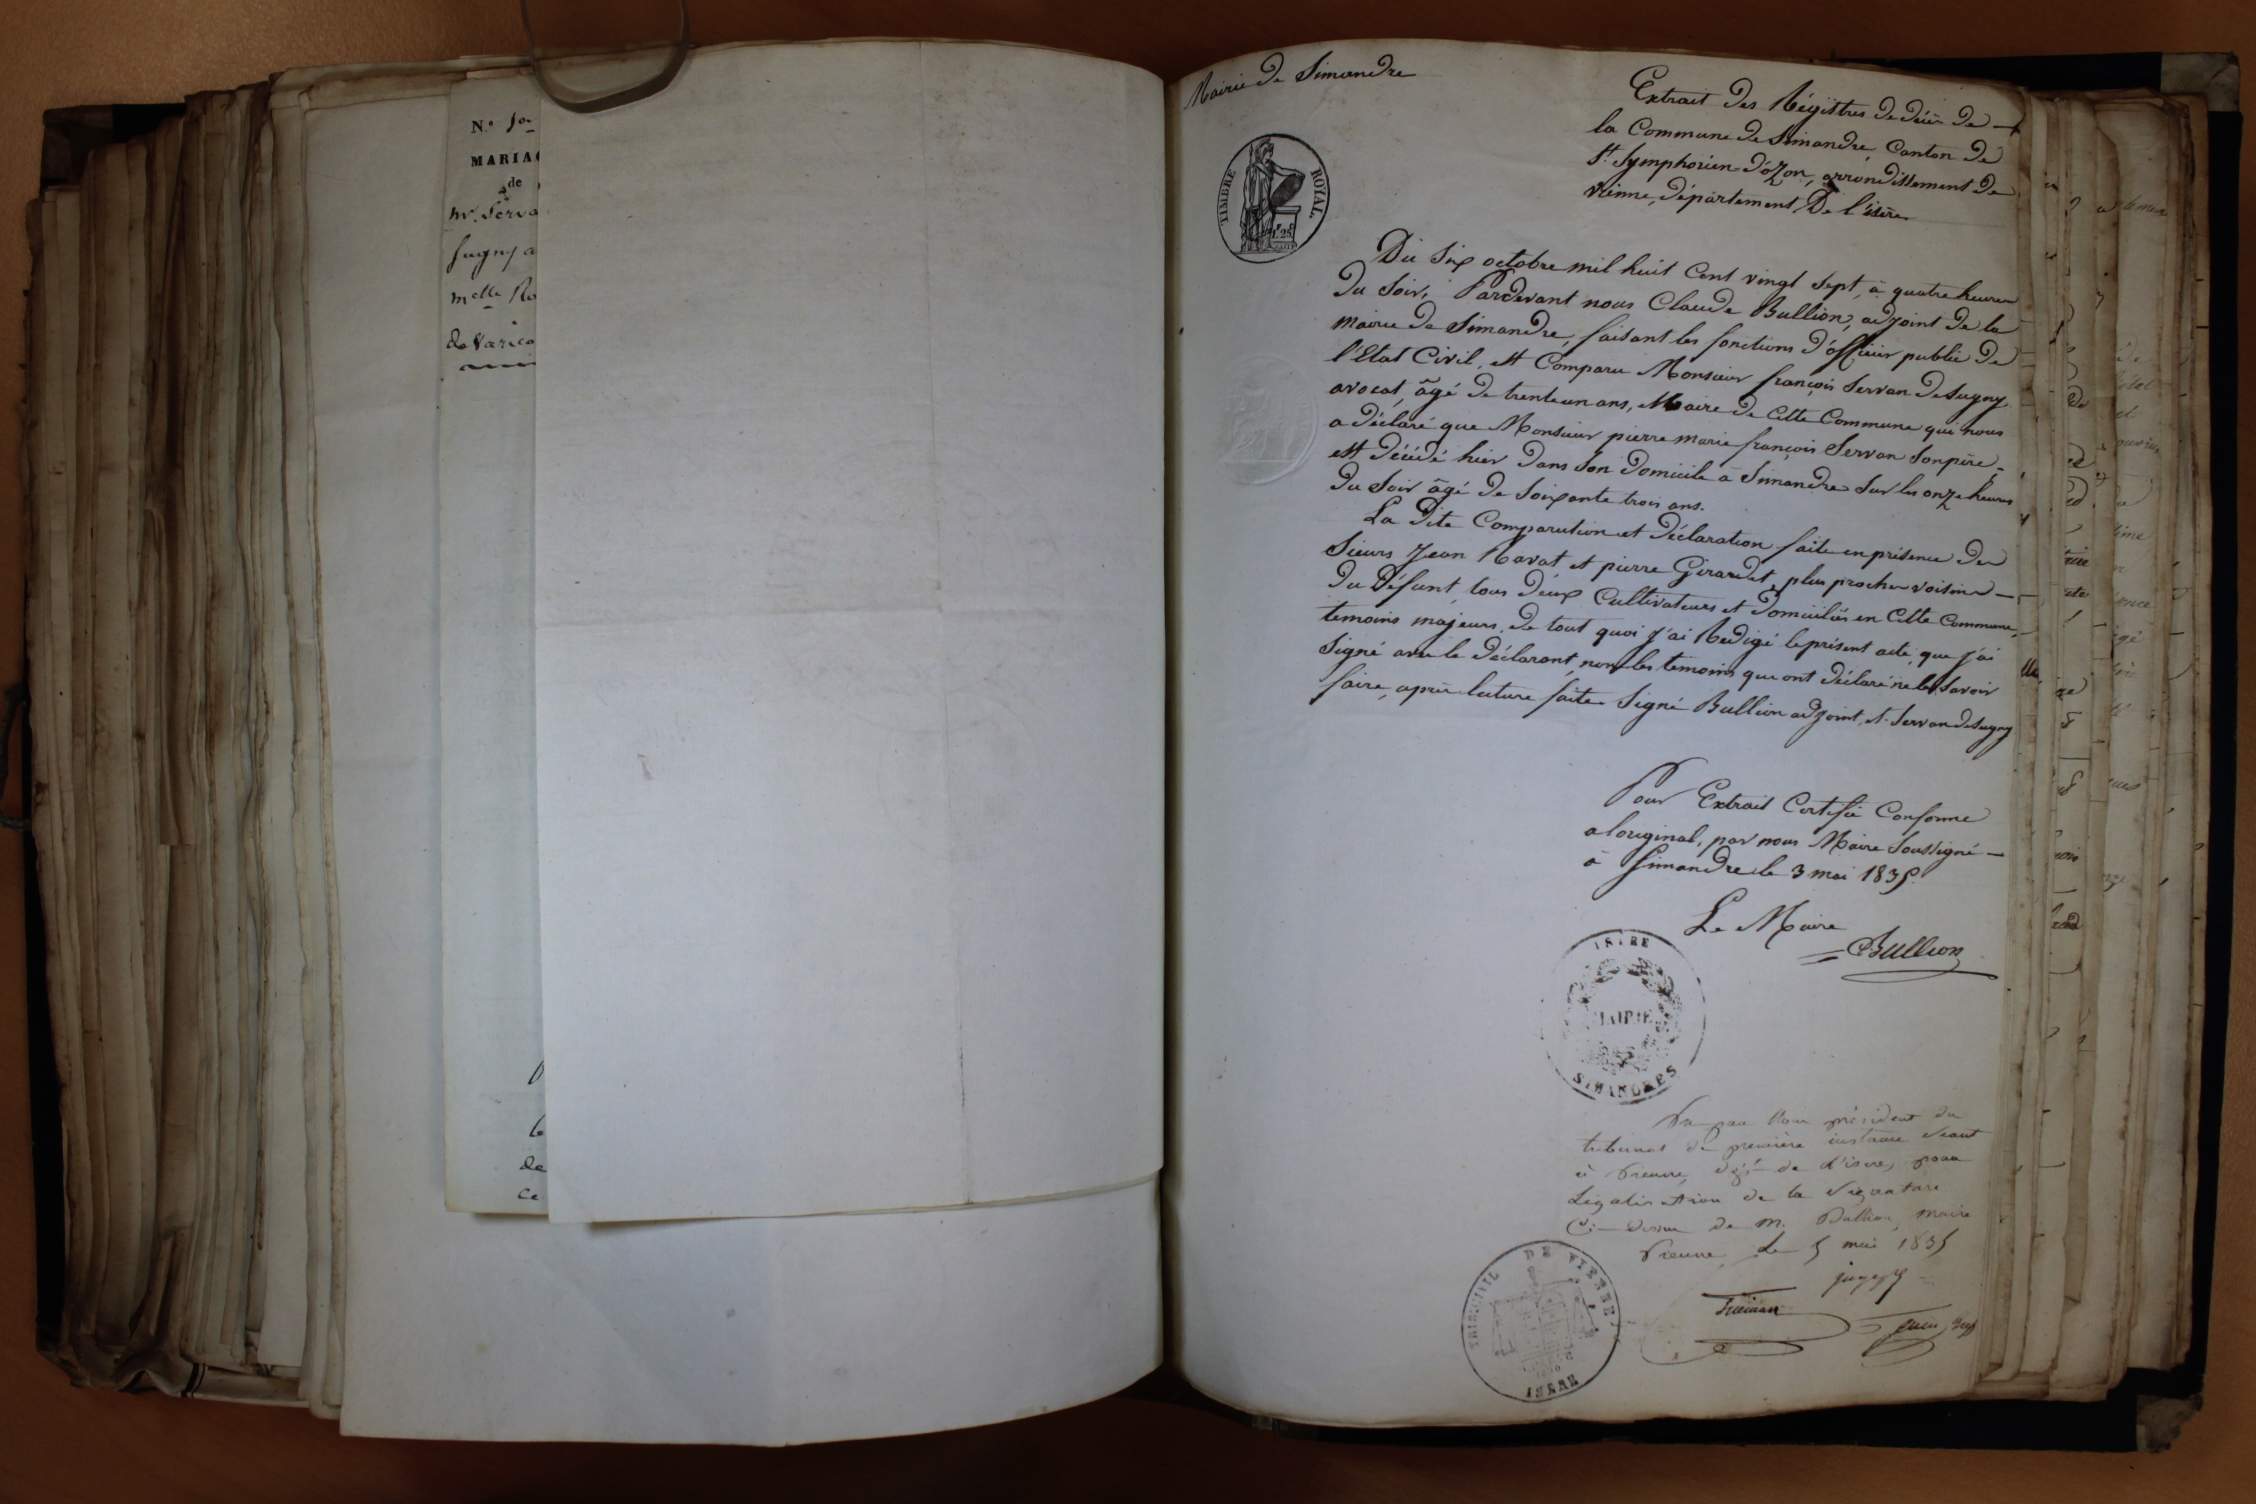 N.o
MARIA
de
mr. Serva
Sugny a
melle Ro
de Varico
Mairie de Simandre
TIMBRE ROYAL
Extrait des Régistres de décès de
la Commune de Simandre, Canton de
St. Symphorien d'ozon, arrondissement de
vienne, département De l'isère
Du Six octobre mil huit Cent vingt Sept, à quatre heures
du Soir, Pardevant nous Claude Bullion, adjoint de la
mairie de Simandre, faisant les fonctions d'officier public de
l'Etat Civil, est Comparu Monsieur françois Servan de Sugny
avocat, âgé de trente un ans, Maire de Cette Commune qui nous
a déclaré que Monsieur pierre marie françois Servan Son père
est décédé hier dans Son domicile à Simandre Sur les onze heures
du Soir âgé de Soixante trois ans.
La dite Comparution et déclaration faite en présence des
Sieurs Jean Ravat et pierre Girardet, plus proches voisins
du Défunt, tous deux Cultivateurs et domiciliés en Cette Commune,
témoins majeurs. de tout quoi j'ai Redigé le présent acte, que j'ai
Signé avec le déclarant, non les témoins qui ont déclaré ne le Savoir
faire, après lecture faite Signé Bullion adjoint, et Servan de Sugny
Pour Extrait Certifié Conforme
a loriginal, par nous Maire Soussigné
à Simandre le 3 mai 1835.
Le Maire
Bullion
ISERE
MAIRIE
SIMANDRES
Vu par Nous président du
tribunal de première instance séant
à Vienne, dépt de l'isere, pour
Légalisation de la Signature
Ci-dessus de M. Bullion, maire
Vienne, le 5 mai 1835
TRIBUNAL DE VIENNE
ISERE